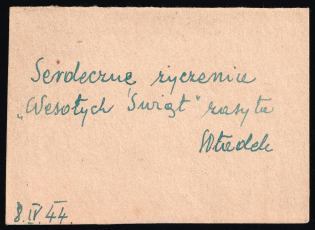 Serdeczne życzenia
"Wesołych Świąt" zasyła
Władek
8.IV.44.